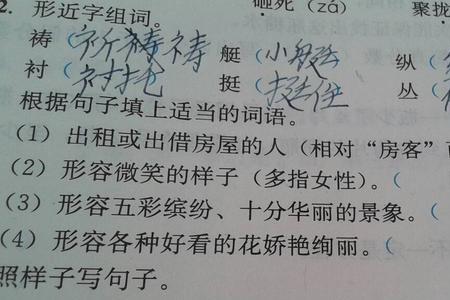 2. 形近字组词。 砸死(zá) 聚拢
祷(祈祷祷 艇(小艇 纵(
衬(衬托 挺(挺住 丛(
根据句子填上适当的词语。
(1)出租或出借房屋的人(相对“房客”
(2)形容微笑的样子(多指女性)。(
(3)形容五彩缤纷、十分华丽的景象。(
(4)形容各种好看的花娇艳绚丽。(
照样子写句子。